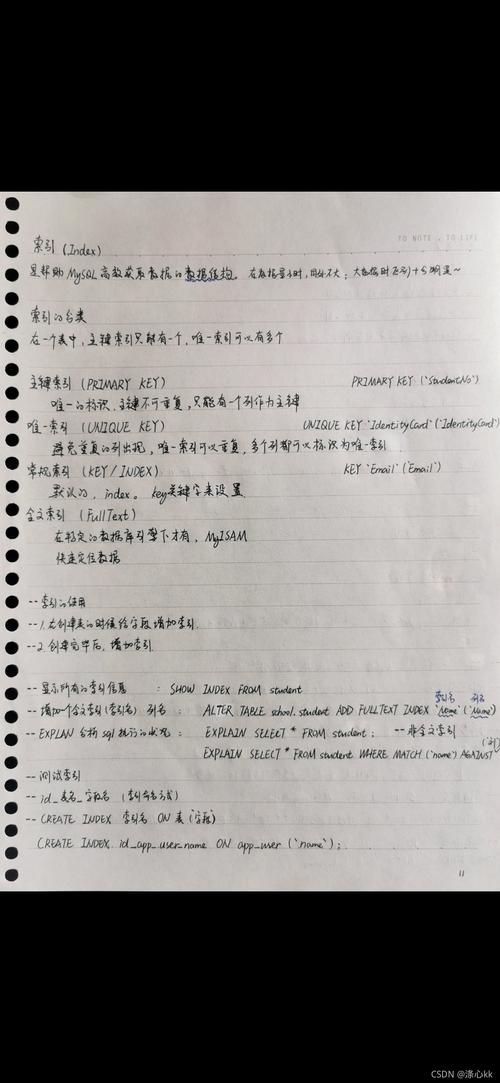 TO NOTE , TO LIFE
索引 (Index)
是帮助 MySQL 高效获取数据的数据结构。在数据量小时,用处不大;大数据时区别十分明显~
索引的分类
在一个表中,主键索引只能有一个,唯一索引可以有多个
主键索引 (PRIMARY KEY) PRIMARY KEY (`StudentNo`)
唯一的标识,主键不可重复,只能有一个列作为主键
唯一索引 (UNIQUE KEY) UNIQUE KEY `IdentityCard` (`IdentityCard
避免重复的列出现,唯一索引可以重复,多个列都可以标识为唯一索引
常规索引 (KEY / INDEX) KEY `Email` (`Email`)
默认的,index。key关键字来设置
全文索引 (FullText)
在特定的数据库引擎下才有,MyISAM
快速定位数据
-- 索引的使用
-- 1.在创建表的时候给字段增加索引.
-- 2.创建完毕后,增加索引
-- 显示所有的索引信息 : SHOW INDEX FROM student
索引名 列名
-- 增加一个全文索引(索引名) 列名 : ALTER TABLE school.student ADD FULLTEXT INDEX `Name` (`Name`)
-- EXPLAN 分析 sql 执行的状况 : EXPLAIN SELECT * FROM student ; -- 非全文索引
EXPLAIN SELECT * FROM student WHERE MATCH (`name`) AGAINST
-- 测试索引
-- id_表名_字段名 (索引命名方式)
-- CREATE INDEX 索引名 ON 表 (`字段`)
CREATE INDEX id_app_user_name ON app_user (`name`);
11
CSDN @涤心kk